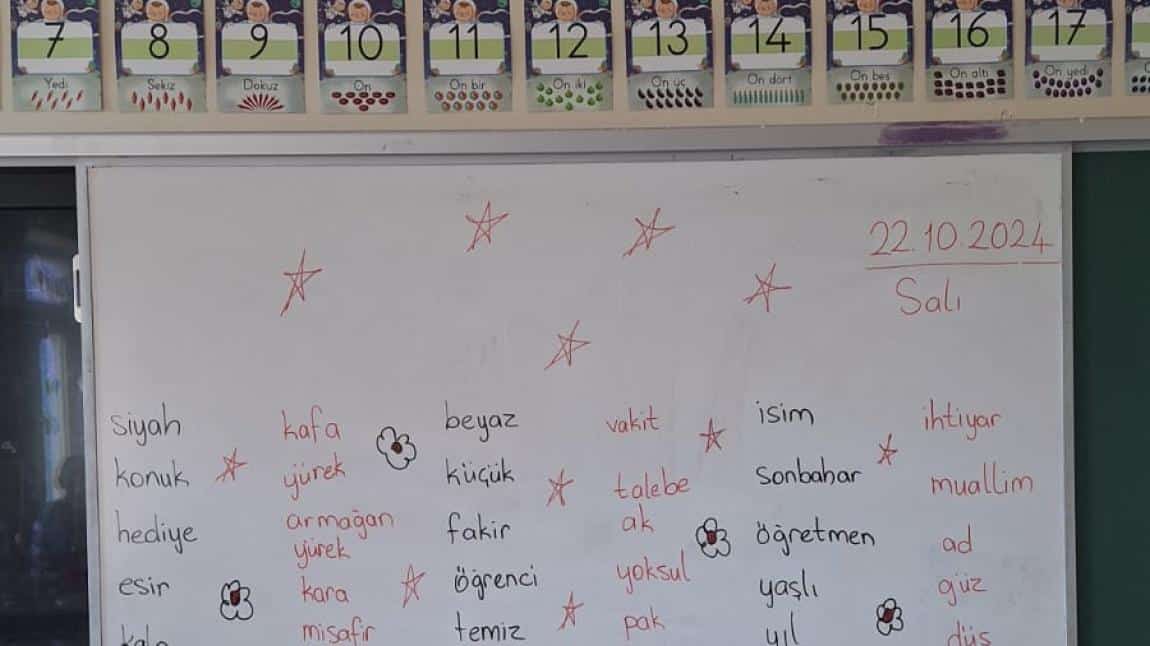 7 8 9 10 11 12 13 14 15 16 17
Yedi Sekiz Dokuz On On bir On iki On üç On dört On beş On altı On yedi
22.10.2024
Salı
siyah kafa beyaz vakit isim ihtiyar
konuk yürek küçük talebe sonbahar muallim
hediye armağan fakir ak öğretmen ad
yürek
esir kara öğrenci yoksul yaşlı güz
misafir temiz pak yıl düş